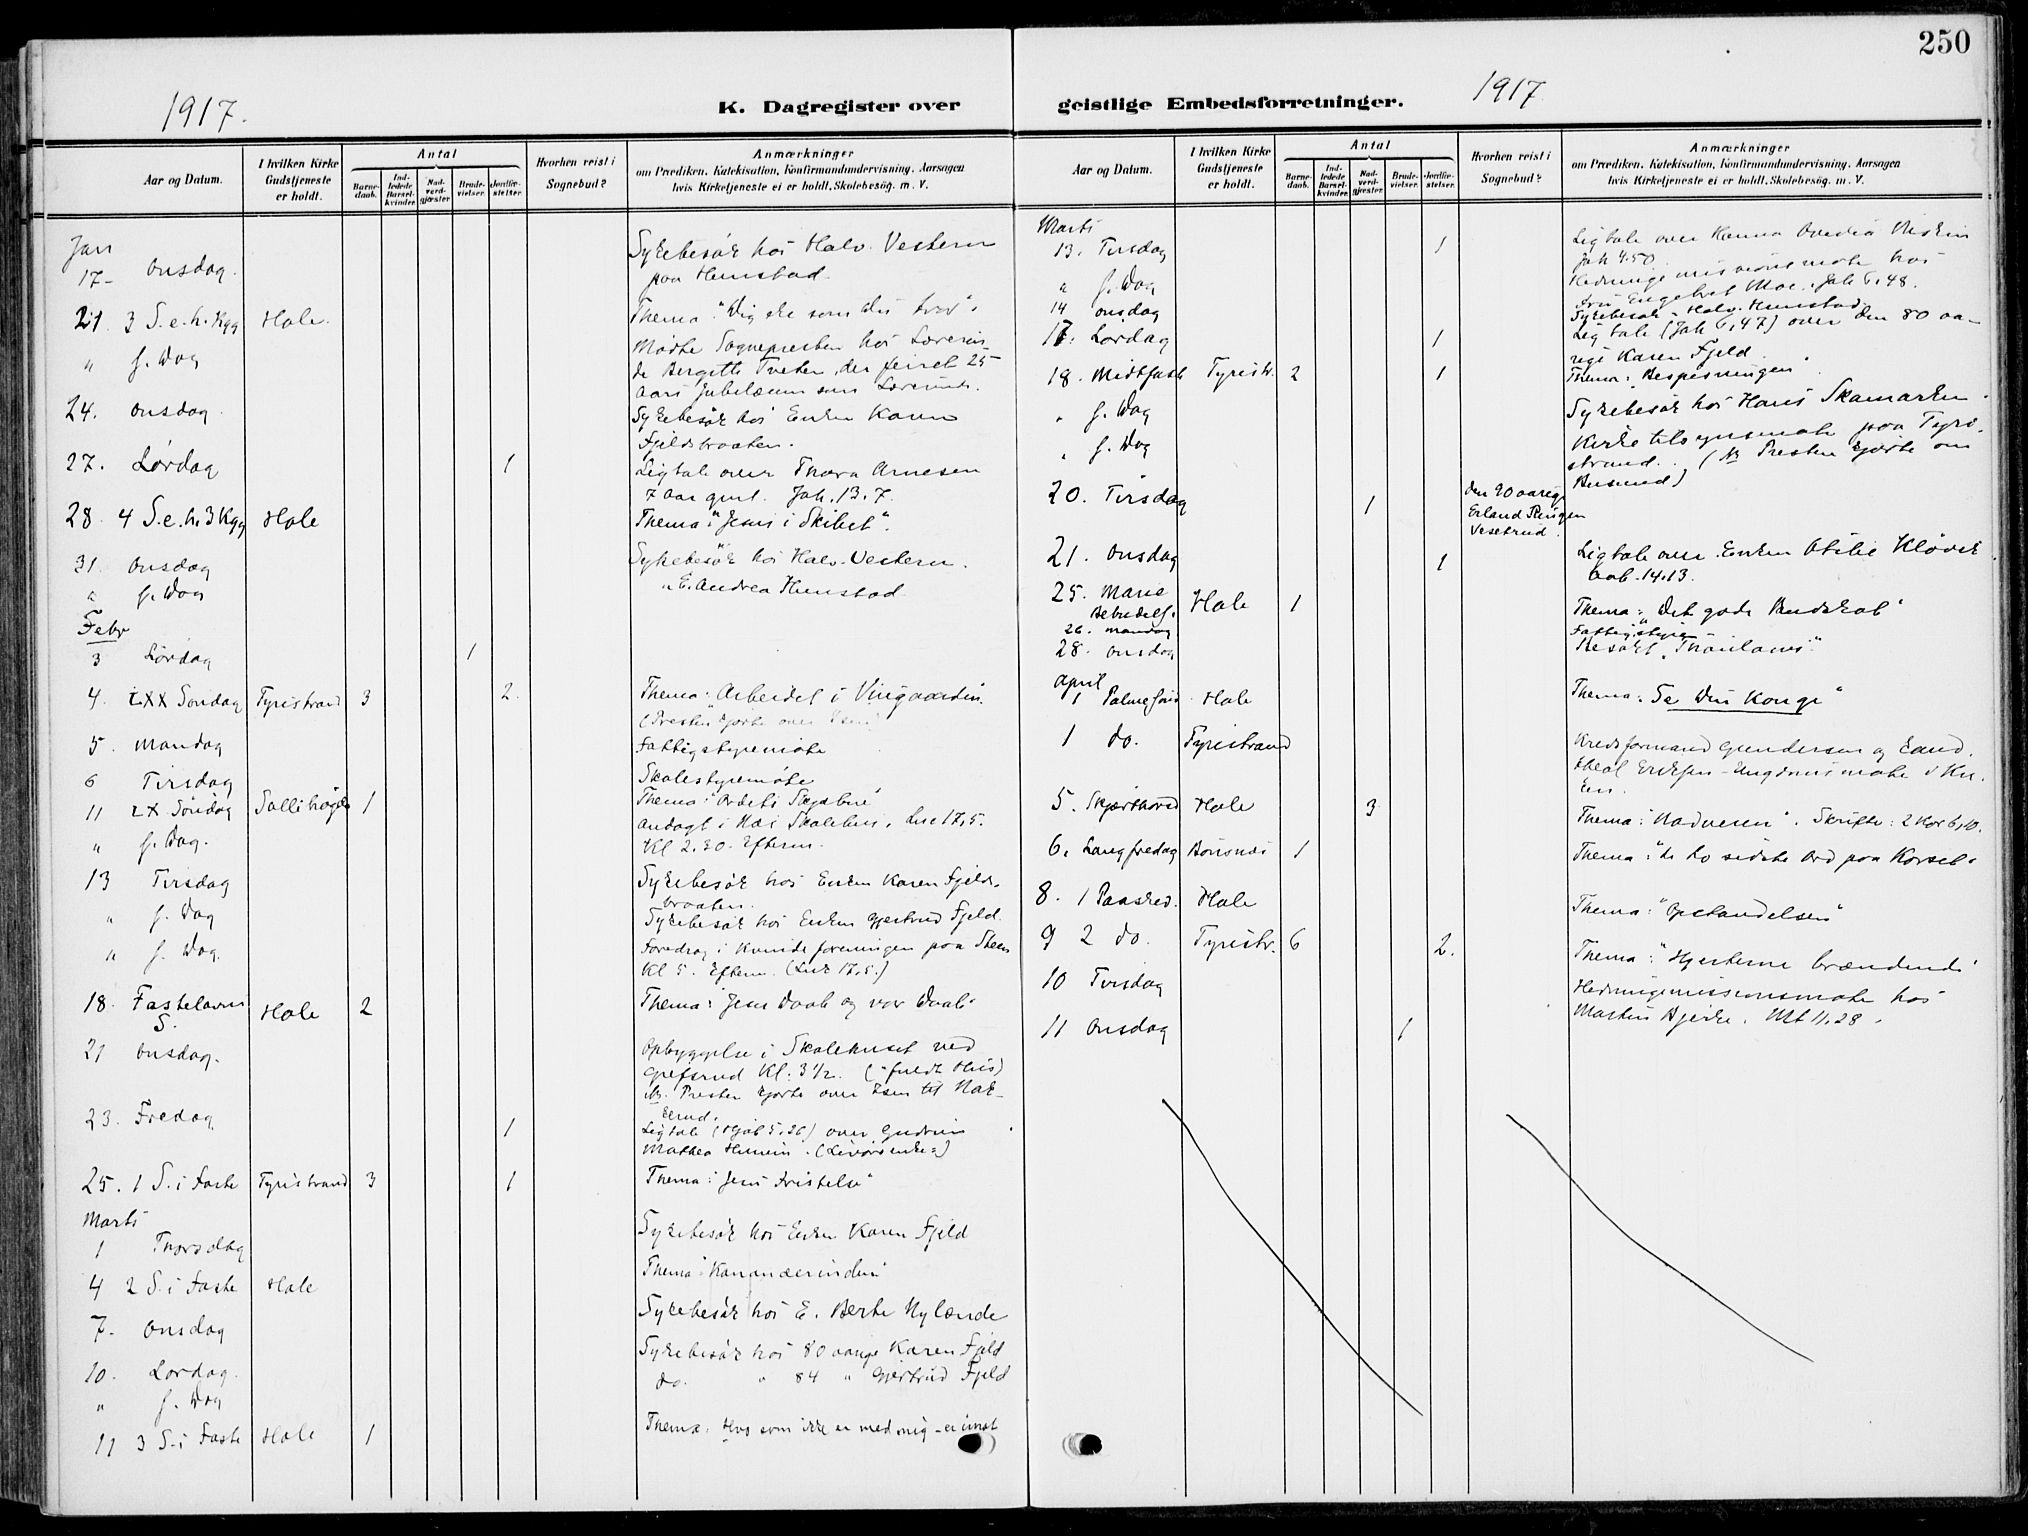 250
1917.
K. Dagregister over
geistlige Embedsforretninger.
1917.
Aar og Datum.
I hvilken Kirke Gudstjeneste er holdt.
Antal
Barne-daab.
Ind-ledede Barsel-kvinder.
Nad-verd-gjæster.
Brude-vielser.
Jordfæ-stelser.
Hvorhen reist i Sognebud?
Anmærkninger
om Prædiken, Katekisation, Konfirmandundervisning, Aarsagen
hvis Kirketjeneste ei er holdt, Skolebesøg. m. V.
Jan
17- Onsdag. Sykebesøk hos Halv. Vestern
paa Hunstad
21 3 S. e. h. kgg Hole. Thema: "Dig ske som du tror"
" s. Dag Mødte Sognepresten hos Lærerin-
de Bergitte Tveten, der feiret 25
Aars Jubilæum som Lærerinde.
24. Onsdag. Sykebesøk hos Enken Karen
Fjeldsbraaten.
27. Lørdag 1 Ligtale over Thora Arnesen
7 Aar gml. Joh. 13.7.
28. 4 S. e. h. 3 kgg Hole Thema: "Jesus i Skibet".
31. Onsdag Sykebesøk hos Halv. Vestern.
" s. Dag " E. Andrea Hunstad
Febr
3 Lørdag 1
4. LXX Søndag Tyristrand 3 2. Thema: "Arbeidet i Vingaarden".
(Presten kjørte over Isen)
5. Mandag Fattigstyremøte
6 Tirsdag Skolestyremøte
11 LX Søndag Sollihøgda 1 Thema: "Ordets Skjæbne"
" s. Dag. Andagt i Næs Skolehus. Luc 17,5.
Kl 2.30 Efterm.
13 Tirsdag Sykebesøk hos Enken Karen Fjelds-
braaten.
" s. Dag Sykebesøk hos Enken Gjertrud Fjeld.
" s. Dag. Foredrag i Kvindeforeningen paa Steen
Kl 5. Efterm. (Luk 17,5.)
18. Fastelavns S. Hole 2 Thema: "Jesu Daab og vor Daab"
21 Onsdag. Opbyggelse i Skolehuset ved
Grefsrud Kl. 3 1/2. ("fuldt Hus)
Nb. Presten kjørte over Isen til Nak-
kerud.
23. Fredag 1 Ligtale (Job 5.26) over Gudrun
Mathea
25. 1 S. i Faste Tyristrand 3 1 Thema: "Jesu Fristelse"
Marts
1 Thorsdag Sykebesøk hos Enken Karen Fjeld
4 2 S. i Faste Hole Thema: "Kananæerinden"
7- Onsdag Sykebesøk hos E. Berte Nylænde
10. Lørdag. Sykebesøk hos 80 aarige Karen Fjeld
" s. Dag do. " 84 " Gjertrud Fjeld
11 3 S. i Faste Hole 1 Thema: Hvo som ikke er med mig - er imot
Aar og Datum.
I hvilken Kirke Gudstjeneste er holdt.
Antal
Barne-daab.
Ind-ledede Barsel-kvinder.
Nad-verd-gjæster.
Brude-vielser.
Jordfæ-stelser.
Hvorhen reist i Sognebud?
Anmærkninger
om Prædiken, Katekisation, Konfirmandundervisning, Aarsagen
hvis Kirketjeneste ei er holdt, Skolebesøg. m. V.
Marts
13. Tirsdag 1 Ligtale over Hanna
Joh 4.50.
" s. Dag Hedningemissionsmøte hos
Fru Engebret Moe. Joh 6,48.
14 Onsdag Sykebesøk - Halv. Hunstad
17. Lørdag 1 Ligtale (Joh 6,47) over den 80 aa-
rige Karen Fjeld.
18. Midtfaste Tyristr. 2 1 Thema: "Bespisningen".
" s. Dag Sykebesøk hos Hans Skamarken.
" s. Dag Kirketilsynsmøte paa Tyri-
strand. (Nb Presten kjørte om
Busund)
20. Tirsdag 1 den 90 aarige
Erland
Vesetrud.
21. Onsdag 1 Ligtale over Enken Otilie
Aab. 14.13.
25. Marie Bebudelsf. Hole 1 Thema: "Det gode Budskab"
26. Mandag Fattigstyre
28. Onsdag Besøkt
April
1 Palmesønd. Hole Thema: "Se Din Konge"
1 do. Tyristrand Kredsformand Gundersen og Cand.
Eriksen - Ungdomsmøte i Kir-
ken.
5. Skjærthorsd Hole 3 Thema: "Nadveren". Skrifte: 2 Kor 6,10.
6. Langfredag Bönsnes 1 Thema: "De to sidste Ord paa Korset"
8. 1 Paasked. Hole Thema: "Opstandelsen"
9 2 do. Tyristr. 6 2. Thema: "Hjerterne brændende"
10 Tirsdag Hedningemissionsmøte hos
Martin Bjerke. Mt 11,28.
11 Onsdag 1